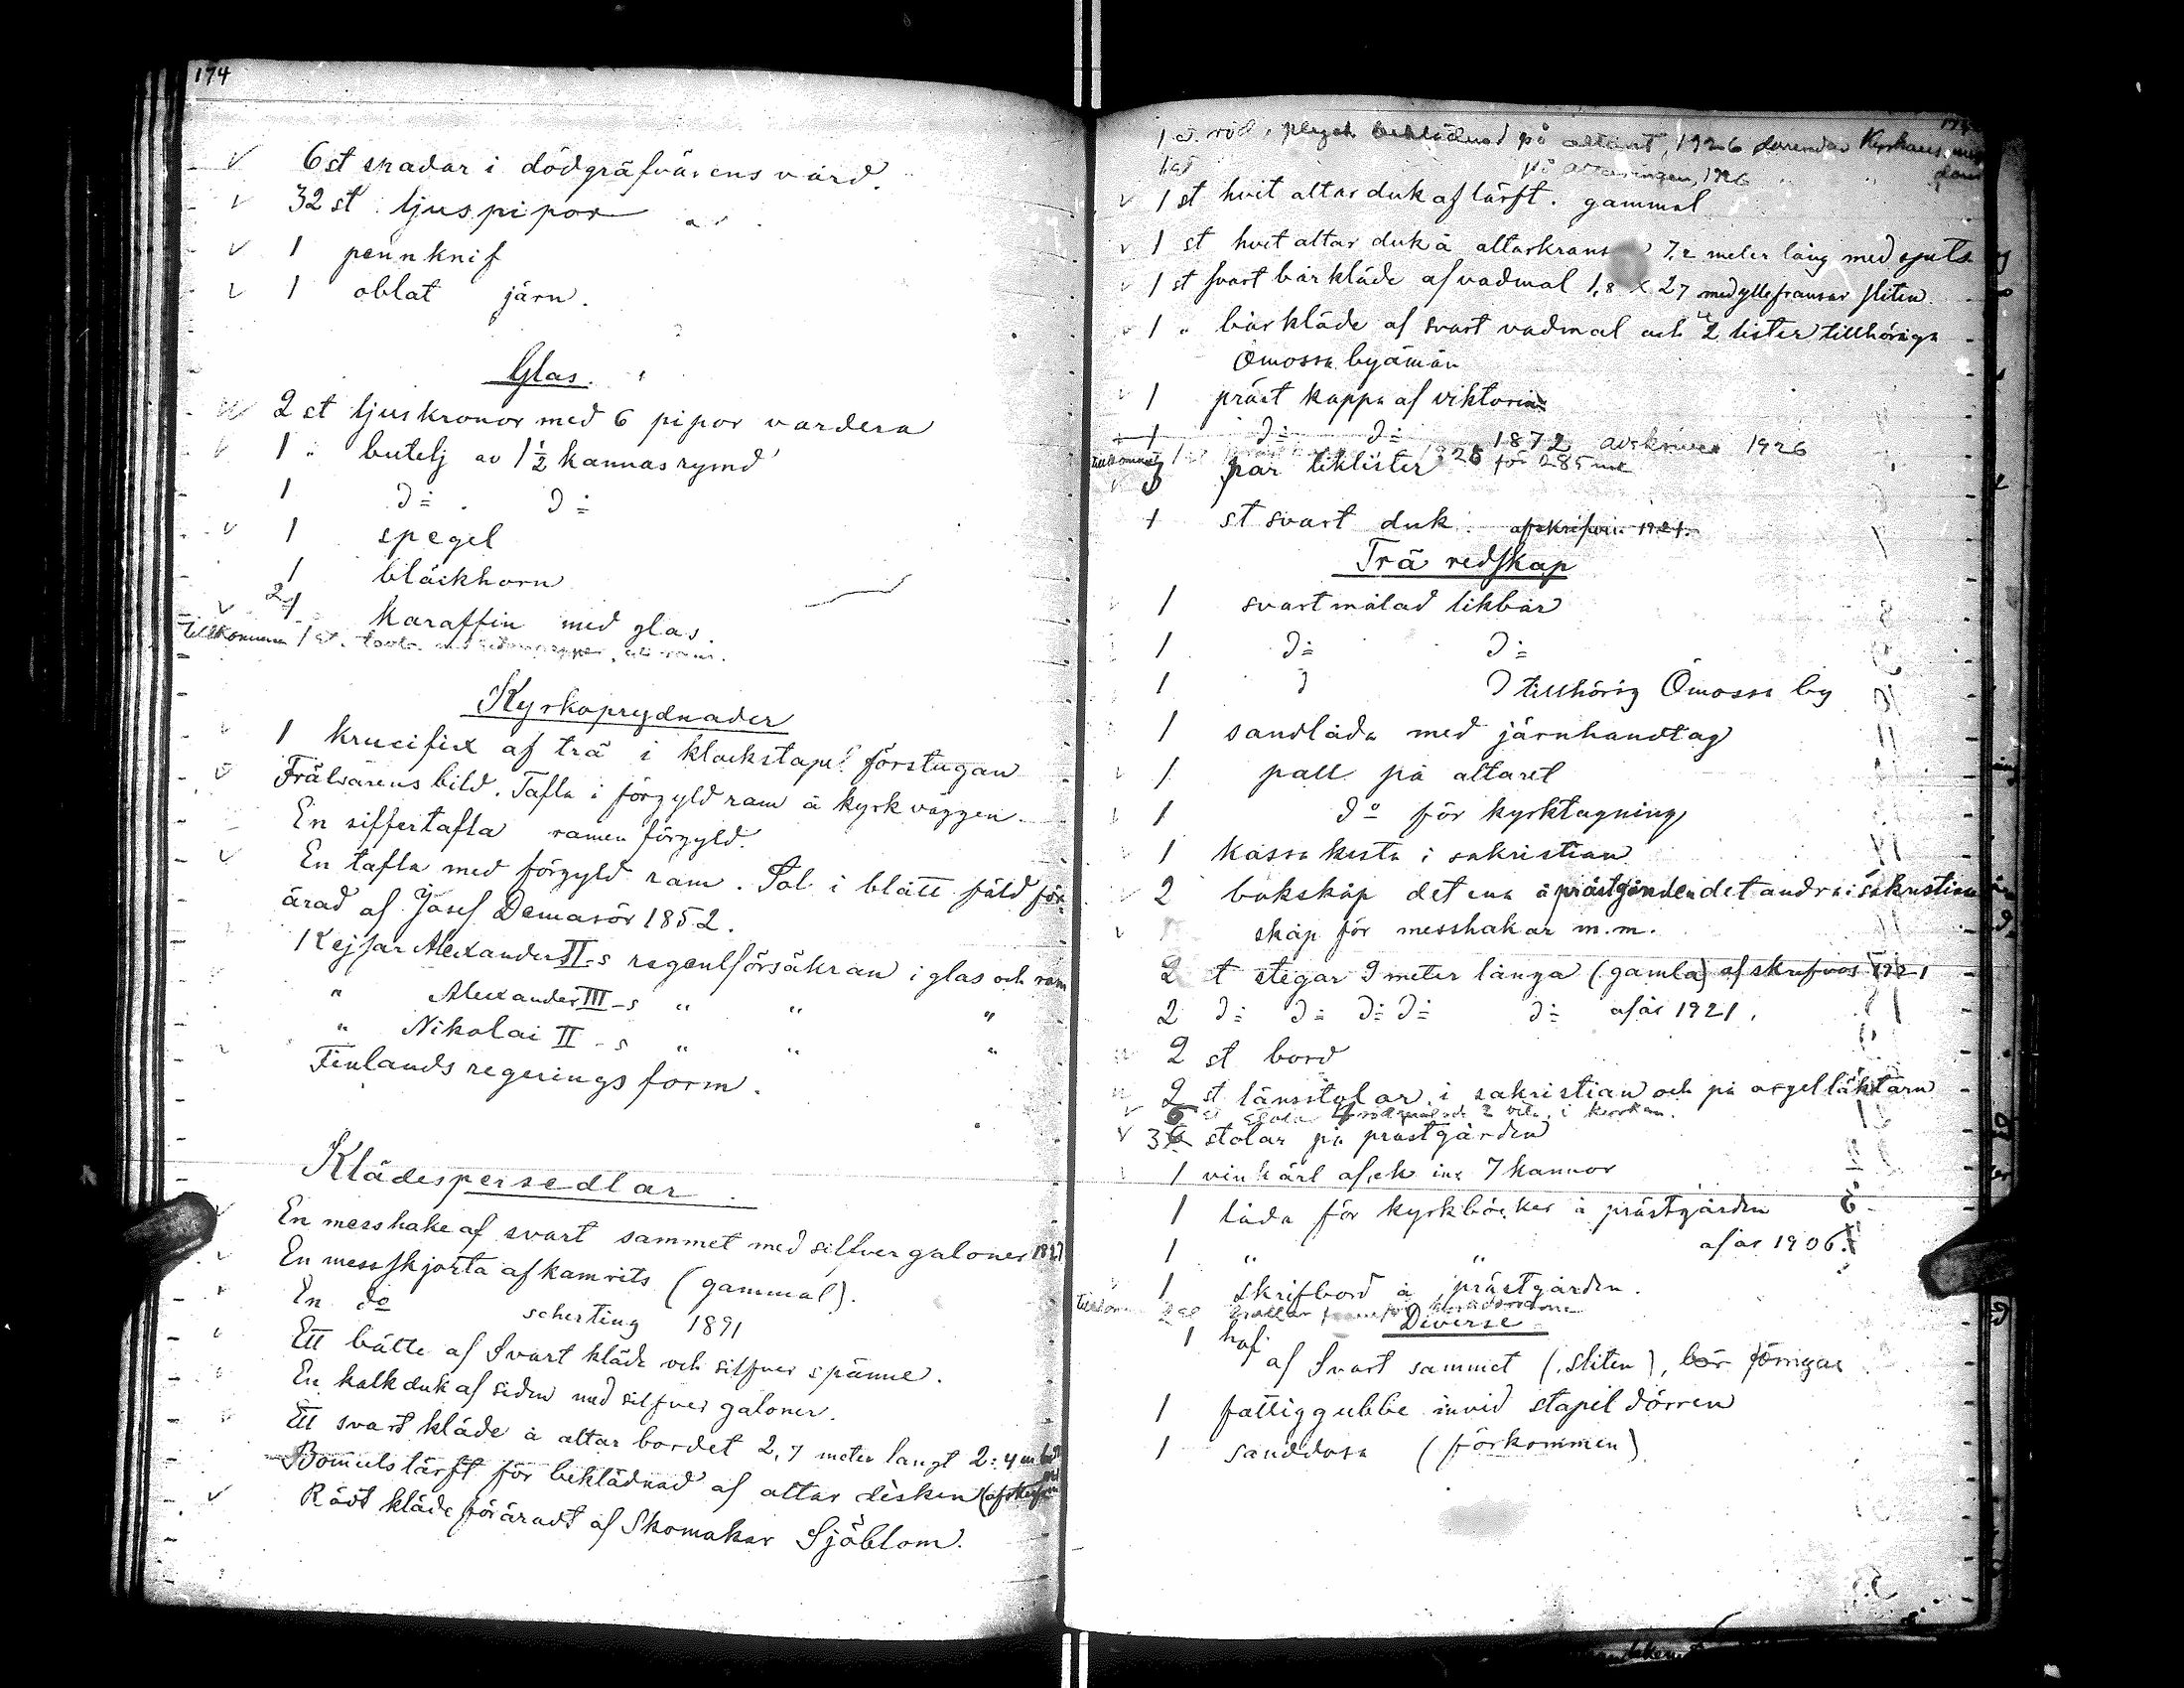 174
6 st spadar i dödgräfvärens vård.
32 st ljuspipor
1 pennknif
1 oblat järn.
Glas.
2 st ljuskronor med 6 pipor vardera
1 " butelj av 1½ kannas rymd
1 d= d=
1 spegel
1 bläckhorn
2 1 Karaffin med glas.
Tillkommen 1 st. tavla
Kyrkoprydnader
1 krucifix af trä i klockstapel förstugan
Frälsarens bild. Tafla i förgyld ram å kyrkväggen.
En siffertafla ramen förgyld.
En tafla med förgyld ram. Sol i blått fäld för-
ärad af Josef Demasör 1852.
1 Kejsar Alexander II-s regentförsäkran i glas och ram
" Alexander III-s " " "
" Nikolai II-s " " "
Finlands regeringsform.
Klädespersedlar.
En messhake af svart sammet med silfvergaloner
En messskjorta af kamrits (gammal).
En do scherting 1891
Ett bälte af Svart kläde och silfver spänne.
En kalkduk af siden med silfver galoner.
Ett svart kläde å altar bordet 2,7 meter langt 2:4 m
Bomulslärft för beklädnad af altar disken
Rödt kläde föräradt af Skomakar Sjöblom.
1 st. röd, plysch beklädnad på altaret, 1926
1 st på altarringen, 1926 " "
1 st hvit altar duk af lärft. gammal
1 st hvit altar duk å altarkrans 7,2 meter lång med spets
1 st svart bårkläde af vadmal 1,8 x 27 med yllefransar sliten
1 " bårkläde af svart vadmal och 2 lister tillhöriga
Ömossa byämän
1 präst kappa af viktoria
1 d= d= 1872 avskrives 1926
Tillkommit 1 st 1926 för 285 mk
3 par liklister
1 st svart duk. afskrifven 1921.
Trä redskap
1 svartmålad likbår
1 d= d=
1 d d tillhörig Ömossa by
1 sandlåda med järnhandtag
1 pall på altaret
1 do för kyrktagning
1 kassa kista i sakristian
2 bokskåp det ena å prästgården det andra i sakristian
skåp för messhakar m.m.
2 t stegar 9 meter långa (gamla) afskrifvas 1921
2 d= d= d= d= d= af år 1921.
2 st bord
2 st länsstolar i sakristian och på orgelläktarn
6 st i kyrkan.
36 stolar på prästgården
1 vinkärl af ek 7 kannor
1 låda för kyrkböcker å prästgården
1 " " af år 1906.
1 skrifbord å prästgården.
Diverse
1 håf af Svart sammet (sliten), bör förnyas
1 fattiggubbe invid stapel dörren
1 sanddosa (förkommen)